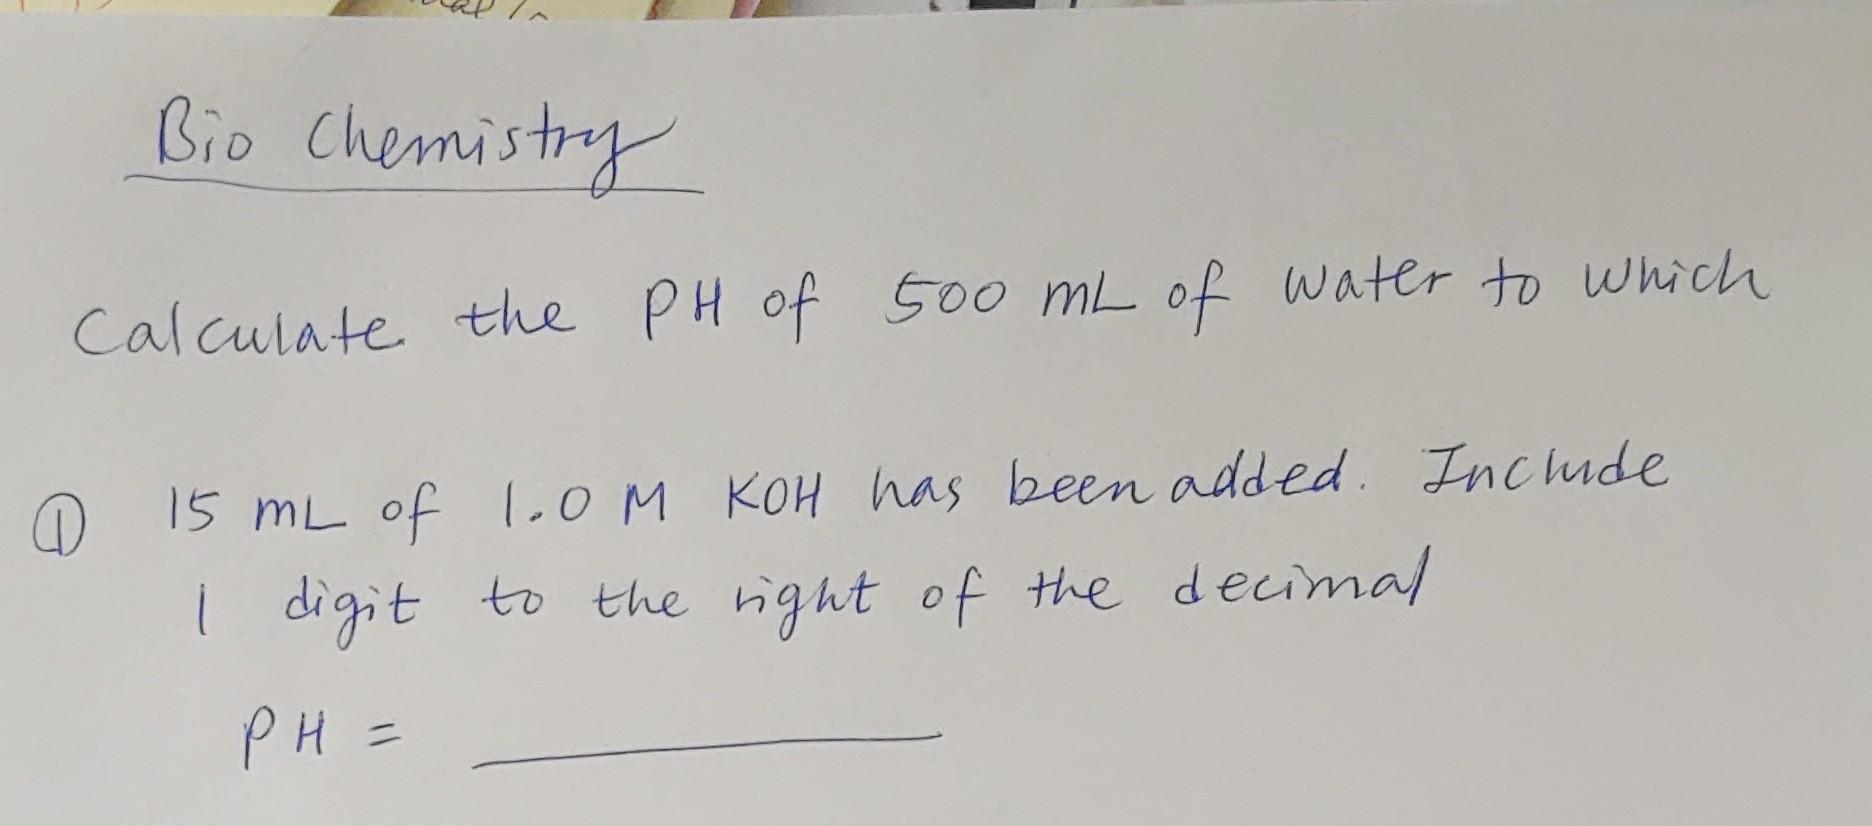 Bio Chemistry
Calculate the PH of 500 mL of water to which
① 15 mL of 1.0 M KOH has been added. Include
1 digit to the right of the decimal
PH =